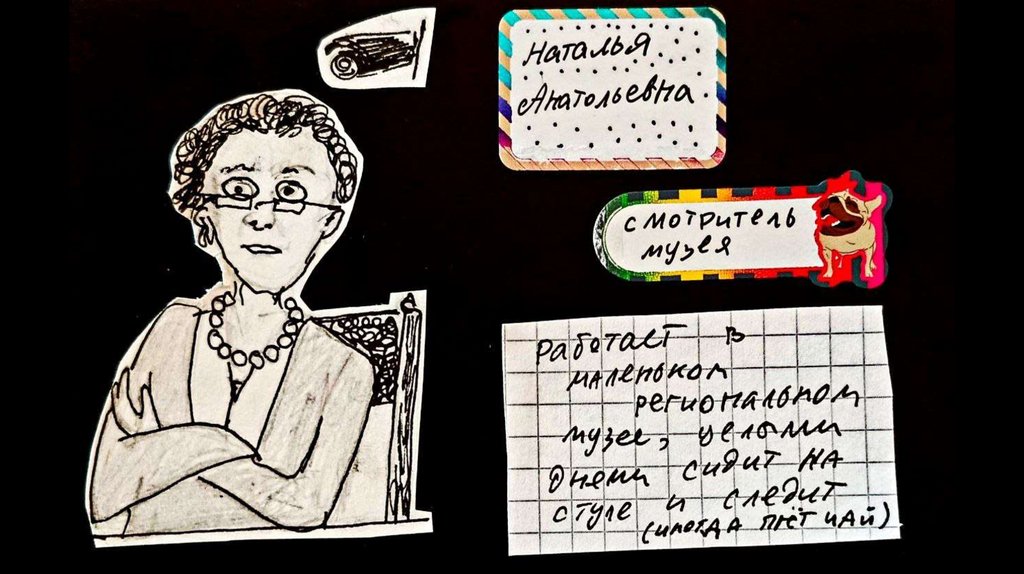 Наталья
Анатольевна
смотритель
музея
работает в
маленьком
региональном
музее, целыми
днями сидит на
стуле и следит
(иногда пьёт чай)